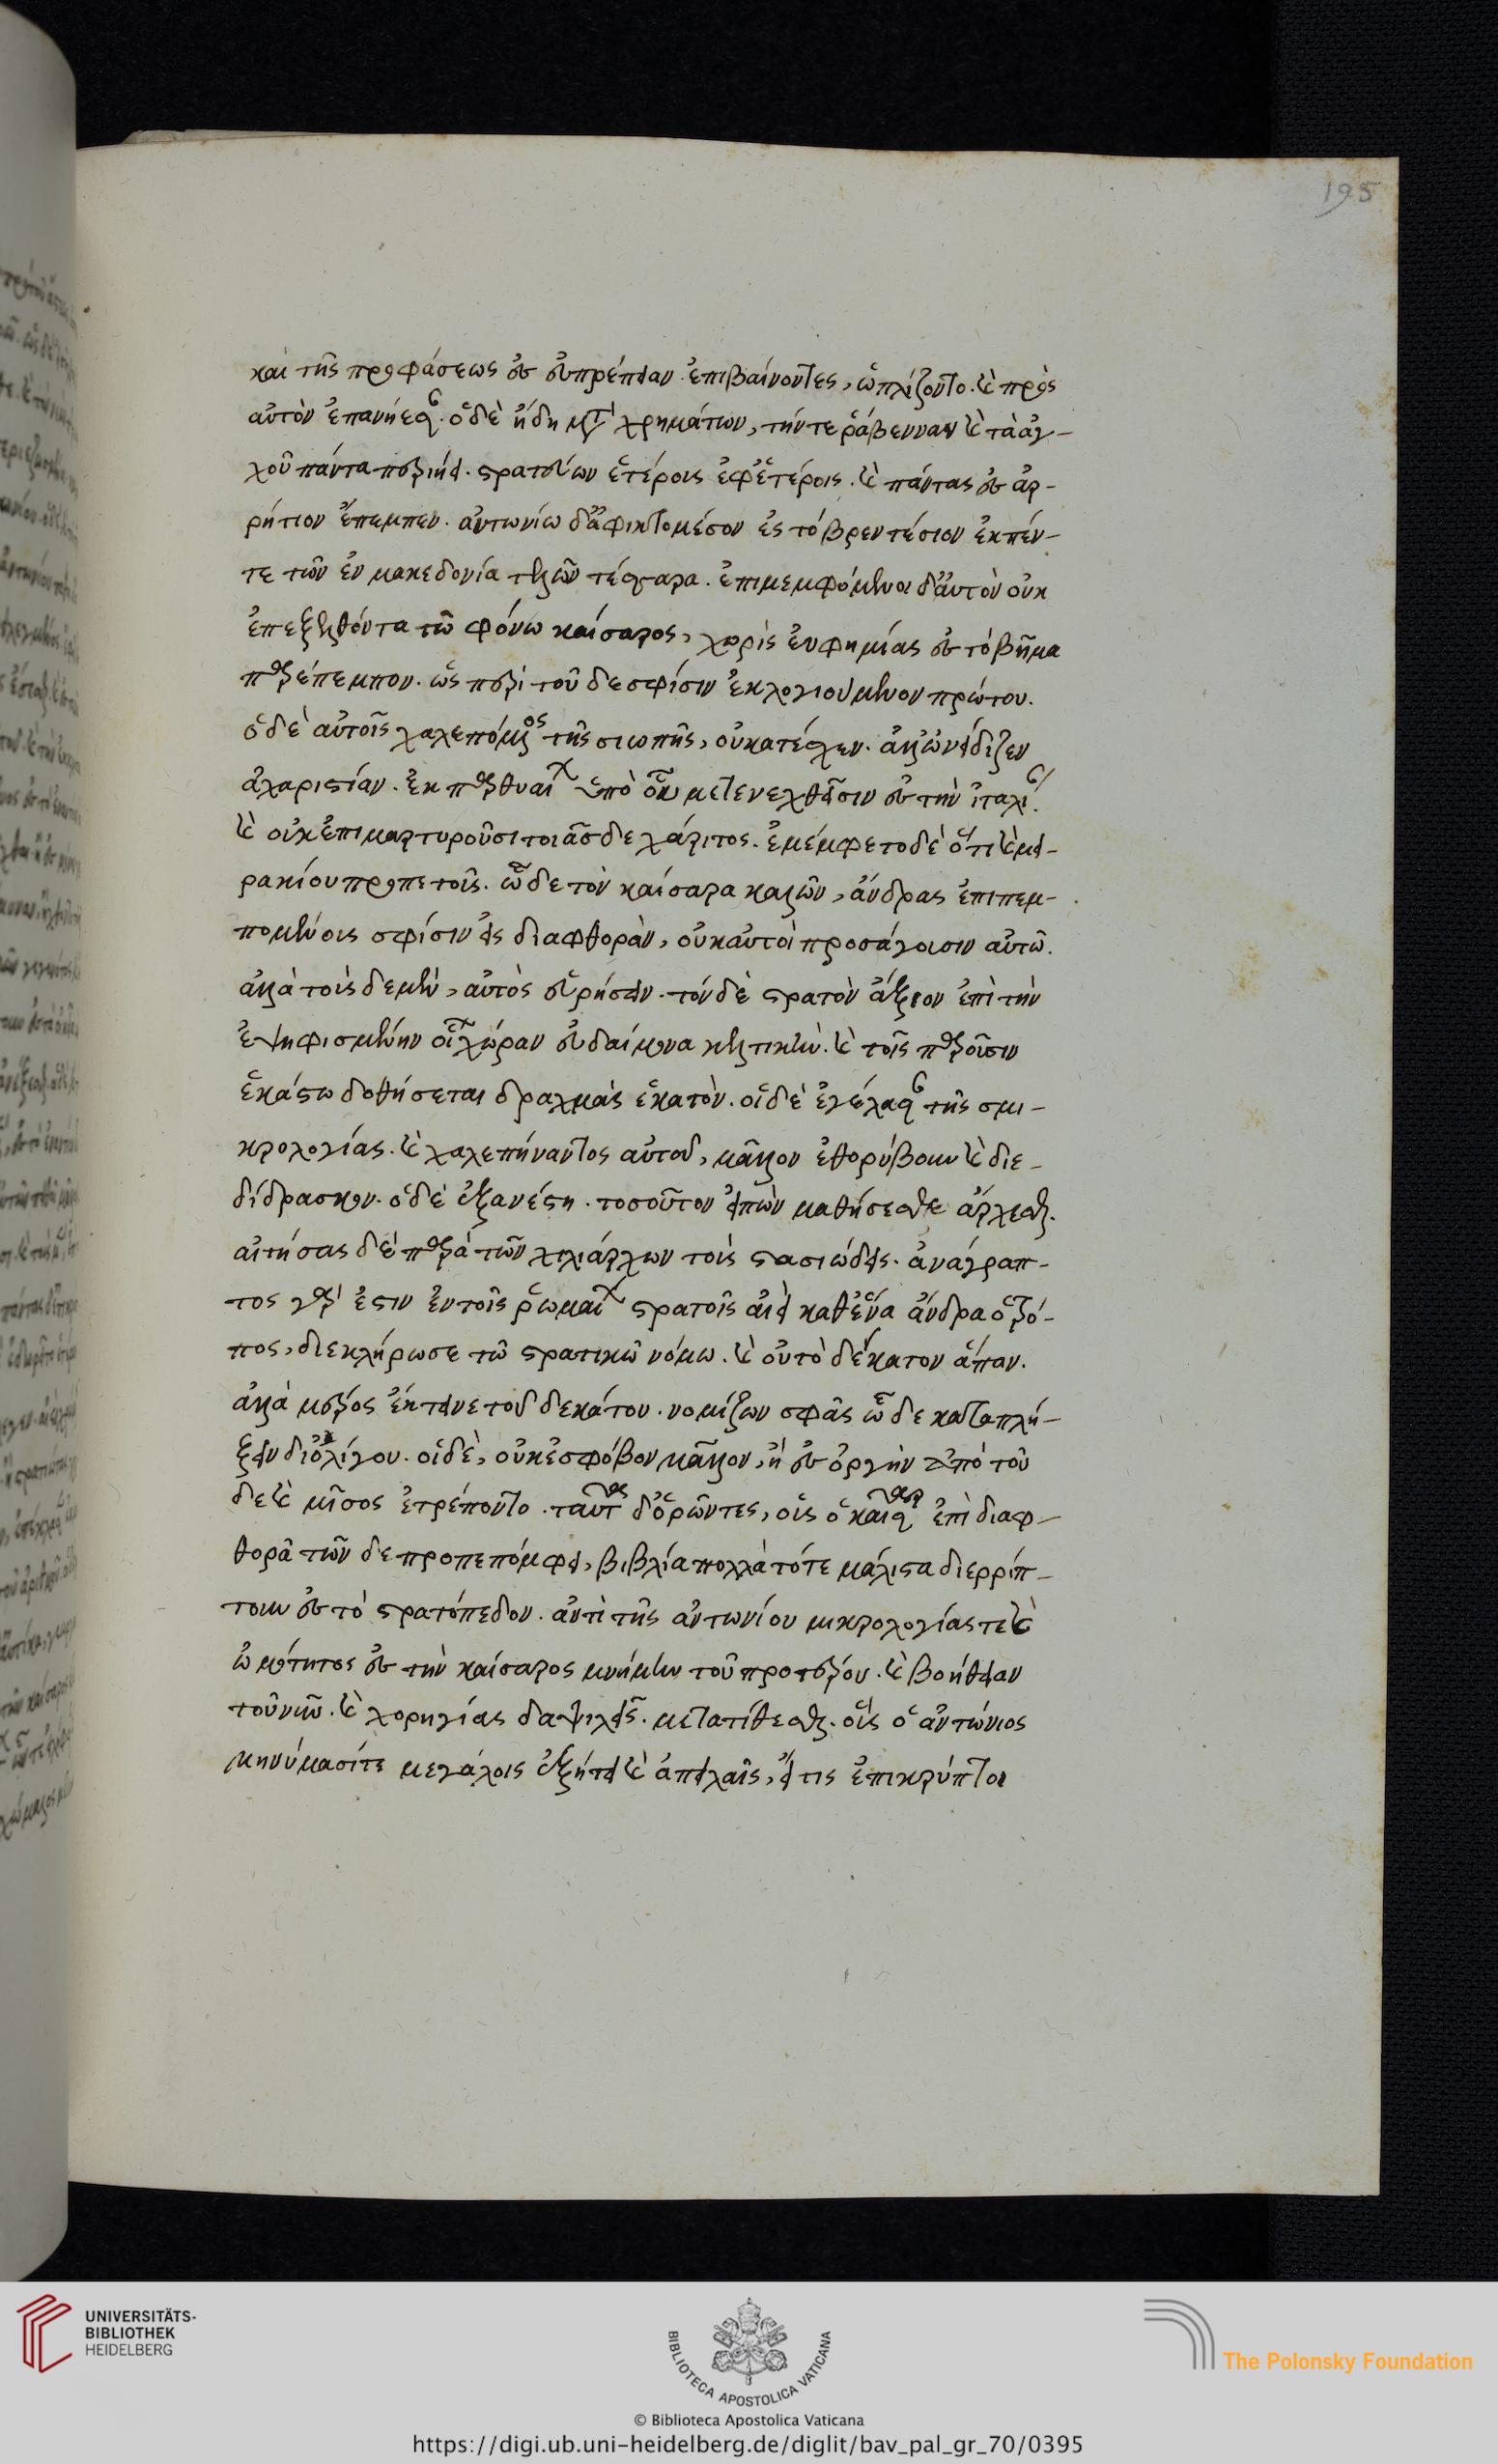 195
καὶ τῆς προφάσεως ἐς εὐπρέπειαν ἐπιβαίνοντες, ὡπλίζοντο. καὶ πρὸς
αὐτὸν ἐπανήεσαν. ὁ δὲ ἤδη μετὰ χρημάτων, τήν τε ῥάβενναν καὶ τὰ ἀγ-
χοῦ πάντα περιήει. στρατεύων ἑτέροις ἐφ' ἑτέροις. καὶ πάντας ἐς ἀρ-
ρήτιον ἔπεμπεν. ἀντωνίω δ' ἀφίκτο μέσον ἐς τὸ βρεντέσιον ἐκ πέν-
τε τῶν ἐν μακεδονία τελῶν τέσσαρα. ἐπιμεμφόμενοι δ' αὐτὸν οὐκ
ἐπεξελθόντα τῶ φόνω καίσαρος, χωρὶς εὐφημίας ἐς τὸ βῆμα
παρέπεμπον. ὡς περὶ τοῦδε σφίσιν ἐκλογιούμενον πρώτου.
ὁ δὲ αὐτοῖς χαλεπόμενος τῆς σιωπῆς, οὐ κατέσχεν. ἀλλ' ὠνείδιζεν
ἀχαριστίαν. ἐκ παρθυαίων ὑπὸ οὗ μετενεχθεῖσιν ἐς τὴν ἰταλίαν.
καὶ οὐκ ἐπιμαρτυροῦσι τοιᾶσδε χάριτος. ἐμέμφετο δὲ ὅτι καὶ μει-
ρακίου προπετοῖς. ὧδε τὸν καίσαρα καλῶν, ἄνδρας ἐπιπεμ-
πομένοις σφίσιν εἰς διαφθορὰν, οὐκ αὐτοὶ προσάγοισιν αὐτῶ.
ἀλλὰ τοὺς δε μὲν, αὐτὸς εὑρήσειν. τὸν δὲ στρατὸν ἄξειον ἐπὶ τὴν
ἐψηφισμένην οἱ χώραν εὐδαίμονα κελτικὴν. καὶ τοῖς παροῦσιν
ἑκάστω δοθήσεται δραχμὰς ἑκατὸν. οἱ δὲ ἐγέλασαν τῆς σμι-
κρολογίας. καὶ χαλεπήναντος αὐτοῦ, μᾶλλον ἐθορύβουν καὶ διε-
δίδρασκον. ὁ δὲ ἐξανέστη. τοσοῦτον εἰπὼν μαθήσεσθε ἄρχεσθαι.
αἰτήσας δὲ παρὰ τῶν χιλιάρχων τοὺς στασιώδεις. ἀνάγραπ-
τος γάρ ἐστιν ἐν τοῖς ῥωμαίων στρατοῖς αἰεὶ καθ' ἕνα ἄνδρα ὁ τρό-
πος, διεκλήρωσε τῶ στρατικῶ νόμω. καὶ οὐ τὸ δέκατον ἅπαν.
ἀλλὰ μέρος ἔκτεινε τοῦ δεκάτου. νομίζων σφᾶς ὧδε καταπλή-
ξειν δι' ὀλίγου. οἱ δὲ, οὐκ ἐς φόβον μᾶλλον, ἢ ἐς ὀργὴν ἀπὸ τοῦ
δε καὶ μῖσος ἐτρέποντο. ταῦτα δ' ὁρῶντες, οὓς ὁ καῖσαρ ἐπὶ διαφ-
θορᾶ τῶν δε προπεπόμφει, βιβλία πολλὰ τότε μάλιστα διερρίπ-
τουν ἐς τὸ στρατόπεδον. ἀντὶ τῆς ἀντωνίου μικρολογίας τε καὶ
ὠμότητος ἐς τὴν καίσαρος μνήμην τοῦ προτέρου. καὶ βοήθειαν
τοῦ νεῶ. καὶ χορηγίας δαψιλεῖς. μετατίθεσθαι. οὓς ὁ ἀντώνιος
μηνύμασί τε μεγάλοις ἐζήτει καὶ ἀπειλαῖς, εἴ τις ἐπικρύπτοι
UNIVERSITÄTS-
BIBLIOTHEK
HEIDELBERG
BIBLIOTECA APOSTOLICA VATICANA
The Polonsky Foundation
© Biblioteca Apostolica Vaticana
https://digi.ub.uni-heidelberg.de/diglit/bav_pal_gr_70/0395